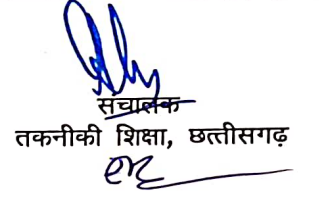 संचालक
तकनीकी शिक्षा, छत्तीसगढ़